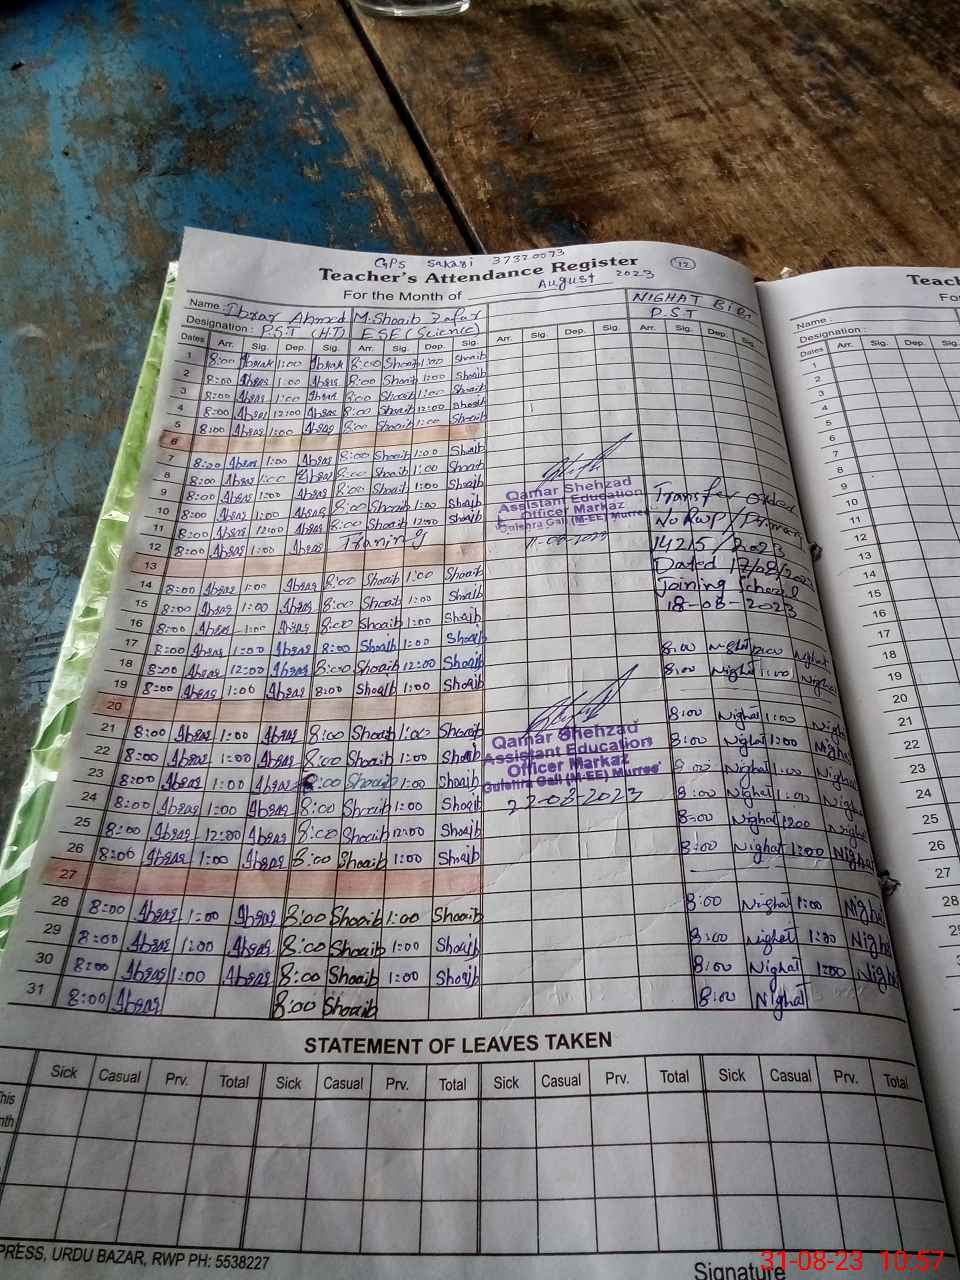 GPS Sakasi 37320073
Teacher's Attendance Register 12
For the Month of August 2023
Name : Ibrar Ahmed M.Shoaib Zafar NIGHAT BiBi
Designation : P.S.T (H.T) E.S.E (Science) P.S.T
Dates Arr. Sig. Dep. Sig. Arr. Sig. Dep. Sig. Arr. Sig. Dep. Sig. Arr. Sig. Dep.
1 8:00 Abrar 1:00 Abrar 8:00 Shoaib 1:00 Shoaib
2 8:00 Abrar 1:00 Abrar 8:00 Shoaib 1:00 Shoaib
3 8:00 Abrar 1:00 Abrar 8:00 Shoaib 1:00 Shoaib
4 8:00 Abrar 12:00 Abrar 8:00 Shoaib 12:00 Shoaib
5 8:00 Abrar 1:00 Abrar 8:00 Shoaib 1:00 Shoaib
6
7 8:00 Abrar 1:00 Abrar 8:00 Shoaib 1:00 Shoaib
8 8:00 Abrar 1:00 Abrar 8:00 Shoaib 1:00 Shoaib
9 8:00 Abrar 1:00 Abrar 8:00 Shoaib 1:00 Shoaib
10 8:00 Abrar 1:00 Abrar 8:00 Shoaib 1:00 Shoaib
11 8:00 Abrar 12:00 Abrar 8:00 Shoaib 12:00 Shoaib
12 8:00 Abrar 1:00 Abrar Traning
13
14 8:00 Abrar 1:00 Abrar 8:00 Shoaib 1:00 Shoaib
15 8:00 Abrar 1:00 Abrar 8:00 Shoaib 1:00 Shoaib
16 8:00 Abrar 1:00 Abrar 8:00 Shoaib 1:00 Shoaib
17 8:00 Abrar 1:00 Abrar 8:00 Shoaib 1:00 Shoaib
18 8:00 Abrar 12:00 Abrar 8:00 Shoaib 12:00 Shoaib 8:00 Nighat 12:00 Nighat
19 8:00 Abrar 1:00 Abrar 8:00 Shoaib 1:00 Shoaib 8:00 Nighat 1:00 Nighat
20
21 8:00 Abrar 1:00 Abrar 8:00 Shoaib 1:00 Shoaib 8:00 Nighat 1:00 Nighat
22 8:00 Abrar 1:00 Abrar 8:00 Shoaib 1:00 Shoaib 8:00 Nighat 1:00 Nighat
23 8:00 Abrar 1:00 Abrar 8:00 Shoaib 1:00 Shoaib 8:00 Nighat 1:00 Nighat
24 8:00 Abrar 1:00 Abrar 8:00 Shoaib 1:00 Shoaib 8:00 Nighat 1:00 Nighat
25 8:00 Abrar 12:00 Abrar 8:00 Shoaib 12:00 Shoaib 8:00 Nighat 1200 Nighat
26 8:00 Abrar 1:00 Abrar 8:00 Shoaib 1:00 Shoaib 8:00 Nighat 1:00 Nighat
27
28 8:00 Abrar 1:00 Abrar 8:00 Shoaib 1:00 Shoaib 8:00 Nighat 1:00 Nighat
29 8:00 Abrar 1:00 Abrar 8:00 Shoaib 1:00 Shoaib 8:00 Nighat 1:00 Nighat
30 8:00 Abrar 1:00 Abrar 8:00 Shoaib 1:00 Shoaib 8:00 Nighat 1:00 Nighat
31 8:00 Abrar 8:00 Shoaib 8:00 Nighat
Qamar Shehzad
Assistant Education
Officer Markaz
Gulehra Gali (M-EE) Murree
11-08-2023
Transfer Order
No RWP/
14215/2023
Dated 17/08/2023
Joining School
18-08-2023
Qamar Shehzad
Assistant Education
Officer Markaz
Gulehra Gali (M-EE) Murree
22-08-2023
STATEMENT OF LEAVES TAKEN
Sick Casual Prv. Total Sick Casual Prv. Total Sick Casual Prv. Total Sick Casual Prv. Total
This
nth
PRESS, URDU BAZAR, RWP PH: 5538227
Signature
Teac
Fo
Name :
Designation :
Dates Arr. Sig. Dep. Sig.
1
2
3
4
5
6
7
8
9
10
11
12
13
14
15
16
17
18
19
20
21
22
23
24
25
26
27
28
31-08-23 10:57